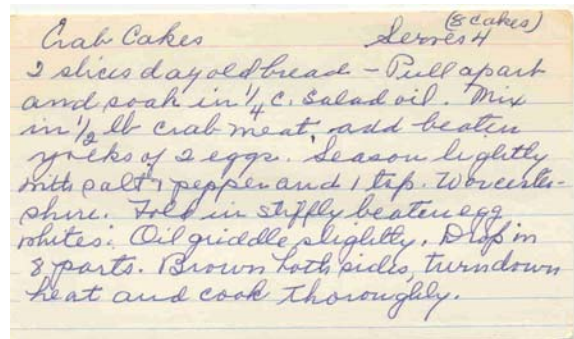 (8 cakes)
Crab Cakes Serves 4
2 slices day old bread - Pull apart
and soak in 1/4 c. salad oil. Mix
in 1/2 lb crab meat, add beaten
yolks of 2 eggs. Season lightly
with salt & pepper and 1 tsp. Worcester-
shire. Fold in stiffly beaten egg
whites. Oil griddle slightly. Drop in
8 parts. Brown both sides, turn down
heat and cook thoroughly.